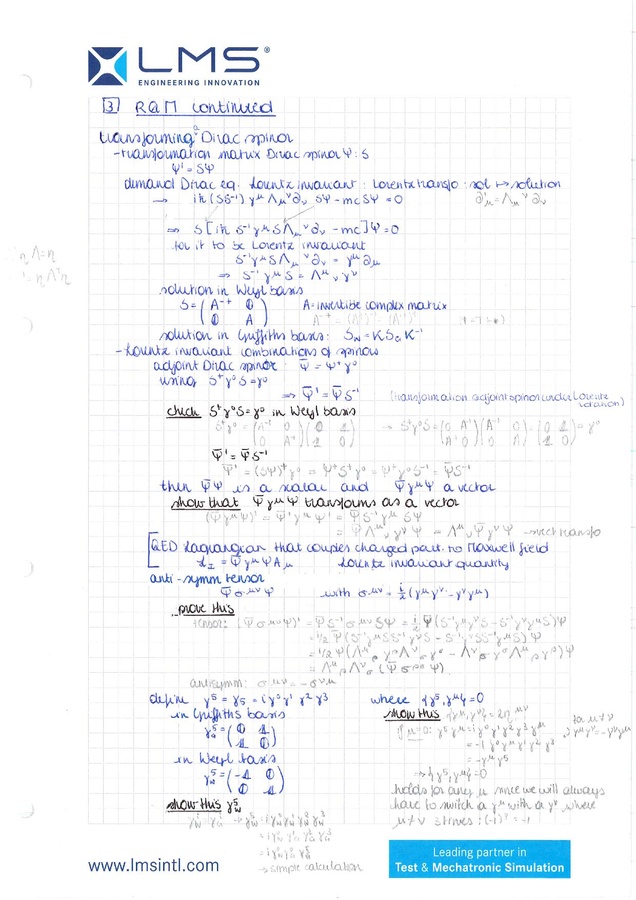 LMS®
ENGINEERING INNOVATION
3 RQM continued
transforming a Dirac spinor
- transformation matrix Dirac spinor Ψ: S
Ψ' = SΨ
demand Dirac eq. Lorentz invariant: Lorentz transfo: sol ↦ solution
→ iħ(SS⁻¹)γ^μ Λ_μ^ν ∂_ν SΨ - mcSΨ = 0 ∂'_μ = Λ_μ^ν ∂_ν
⇒ S[iħ S⁻¹γ^μ S Λ_μ^ν ∂_ν - mc]Ψ = 0
for it to be Lorentz invariant
S⁻¹γ^μ S Λ_μ^ν ∂_ν = γ^μ ∂_μ
⇒ S⁻¹γ^μ S = Λ^μ_ν γ^ν
solution in Weyl basis
S = (A^-+ 0
0 A) A = invertible complex matrix
solution in Griffiths basis: S_W = K S_G K⁻¹
- Lorentz invariant combinations of spinors
adjoint Dirac spinor: Ψ̄ = Ψ⁺γ⁰
using S⁺γ⁰S = γ⁰
⇒ Ψ̄' = Ψ̄S⁻¹ (transformation adjoint spinor under Lorentz
rotation)
check S⁺γ⁰S = γ⁰ in Weyl basis
Ψ̄' = Ψ̄S⁻¹
Ψ̄' = (SΨ)⁺γ⁰ = Ψ⁺S⁺γ⁰ = Ψ⁺γ⁰S⁻¹ = Ψ̄S⁻¹
then Ψ̄Ψ is a scalar and Ψ̄γ^μΨ a vector
show that Ψ̄γ^μΨ transforms as a vector
(Ψ̄γ^μΨ)' = Ψ̄'γ^μΨ' = Ψ̄S⁻¹γ^μ SΨ
= Ψ̄Λ^μ_ν γ^νΨ = Λ^μ_ν Ψ̄γ^νΨ → vect transfo
QED Lagrangian that couples charged part. to Maxwell field
ℒ_I = Ψ̄γ^μΨA_μ Lorentz invariant quantity
anti-symm tensor
Ψ̄σ^μνΨ with σ^μν = i/2(γ^μγ^ν - γ^νγ^μ)
prove this
tensor: (Ψ̄σ^μνΨ)' = Ψ̄S⁻¹σ^μν SΨ = i/2 Ψ̄(S⁻¹γ^μγ^νS - S⁻¹γ^νγ^μS)Ψ
= i/2 Ψ̄(S⁻¹γ^μSS⁻¹γ^νS - S⁻¹γ^νSS⁻¹γ^μS)Ψ
antisymm: σ^μν = -σ^νμ
define γ⁵ = γ₅ = iγ⁰γ¹γ²γ³ where {γ⁵, γ^μ} = 0
in Griffiths basis
γ⁵_G = (0 1
1 0)
in Weyl basis
γ⁵_W = (-1 0
0 1)
show this γ⁵_W
→ simple calculation
show this {γ^μ, γ^ν} = 2η^μν
if μ=0: γ⁵γ^μ = iγ⁰γ¹γ²γ³γ^μ
= -iγ⁰γ^μγ¹γ²γ³
= -γ^μγ⁵
→ {γ⁵, γ^μ} = 0
for μ≠ν
holds for any μ since we will always
have to switch a γ^μ with a γ^ν where
μ≠ν 3 times: (-1)³ = -1
www.lmsintl.com
Leading partner in
Test & Mechatronic Simulation